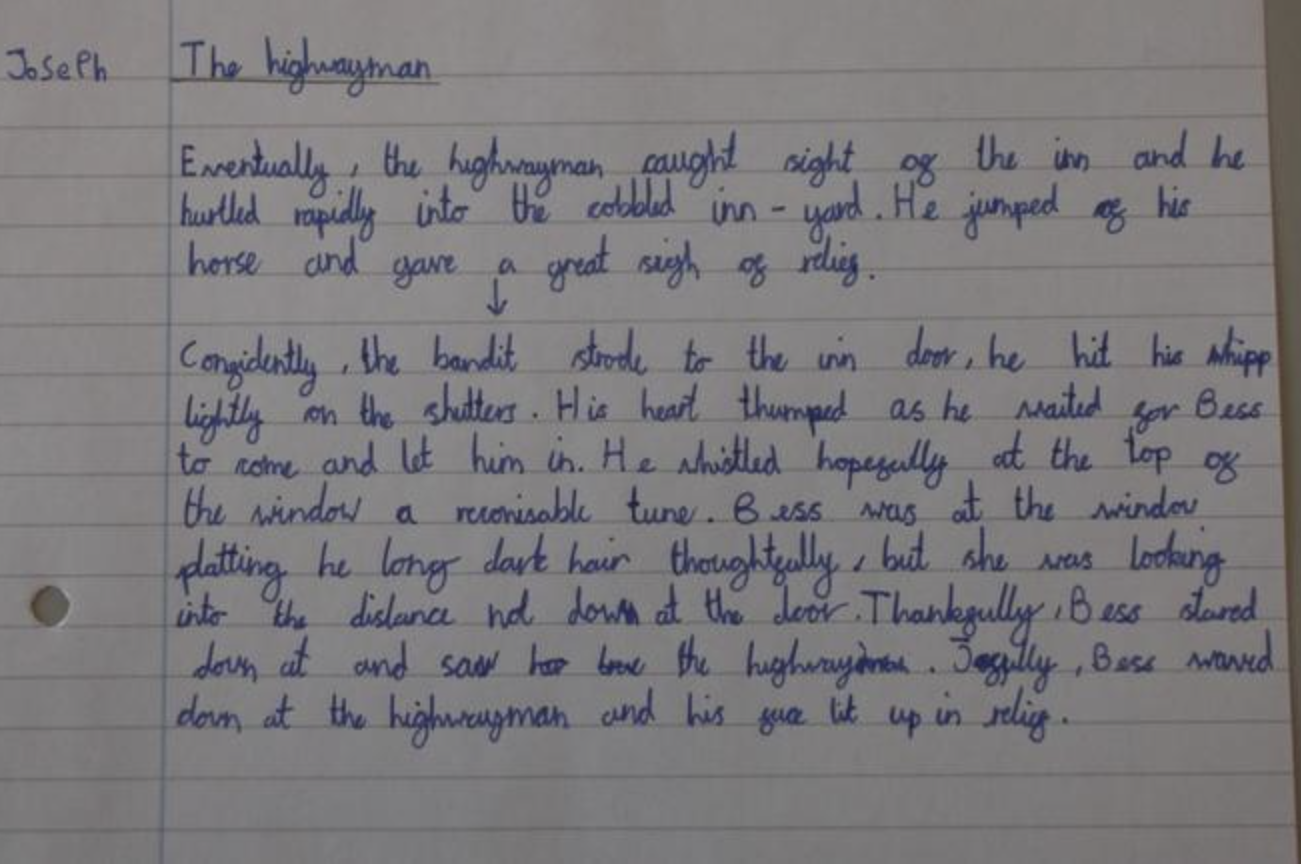 Joseph The highwayman
Eventually, the highwayman caught sight of the inn and he
hurtled rapidly into the cobbled inn-yard. He jumped of his
horse and gave a great sigh of relief.
↓
Confidently, the bandit strode to the inn door, he hit his whipp
lightly on the shutters. His heart thumped as he waited for Bess
to come and let him in. He whistled hopefully at the top of
the window a reconisable tune. Bess was at the window
platting he long dark hair thoughtfully, but she was looking
into the distance not down at the door. Thankfully, Bess stared
down at and saw the highwayman. Joyfully, Bess waved
down at the highwayman and his face lit up in relief.